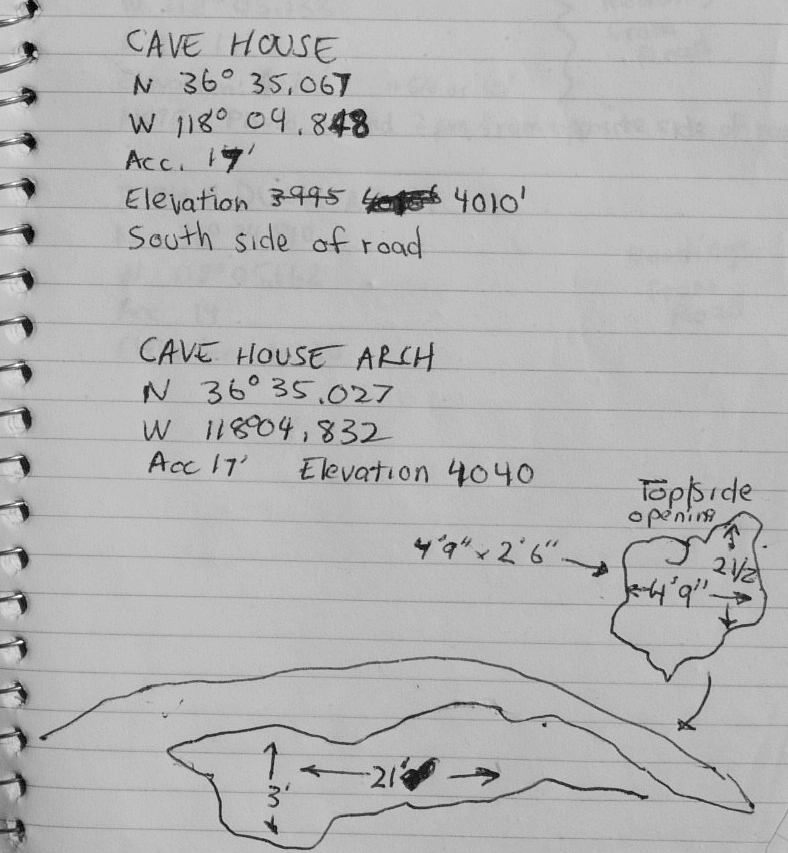 CAVE HOUSE
N 36° 35.067
W 118° 04.848
Acc. 17'
Elevation 3995 4010'
South side of road
CAVE HOUSE ARCH
N 36° 35.027
W 118°04.832
Acc 17' Elevation 4040
Top/side
opening
4'9" x 2'6"
2 1/2
4'9"
21'
3'